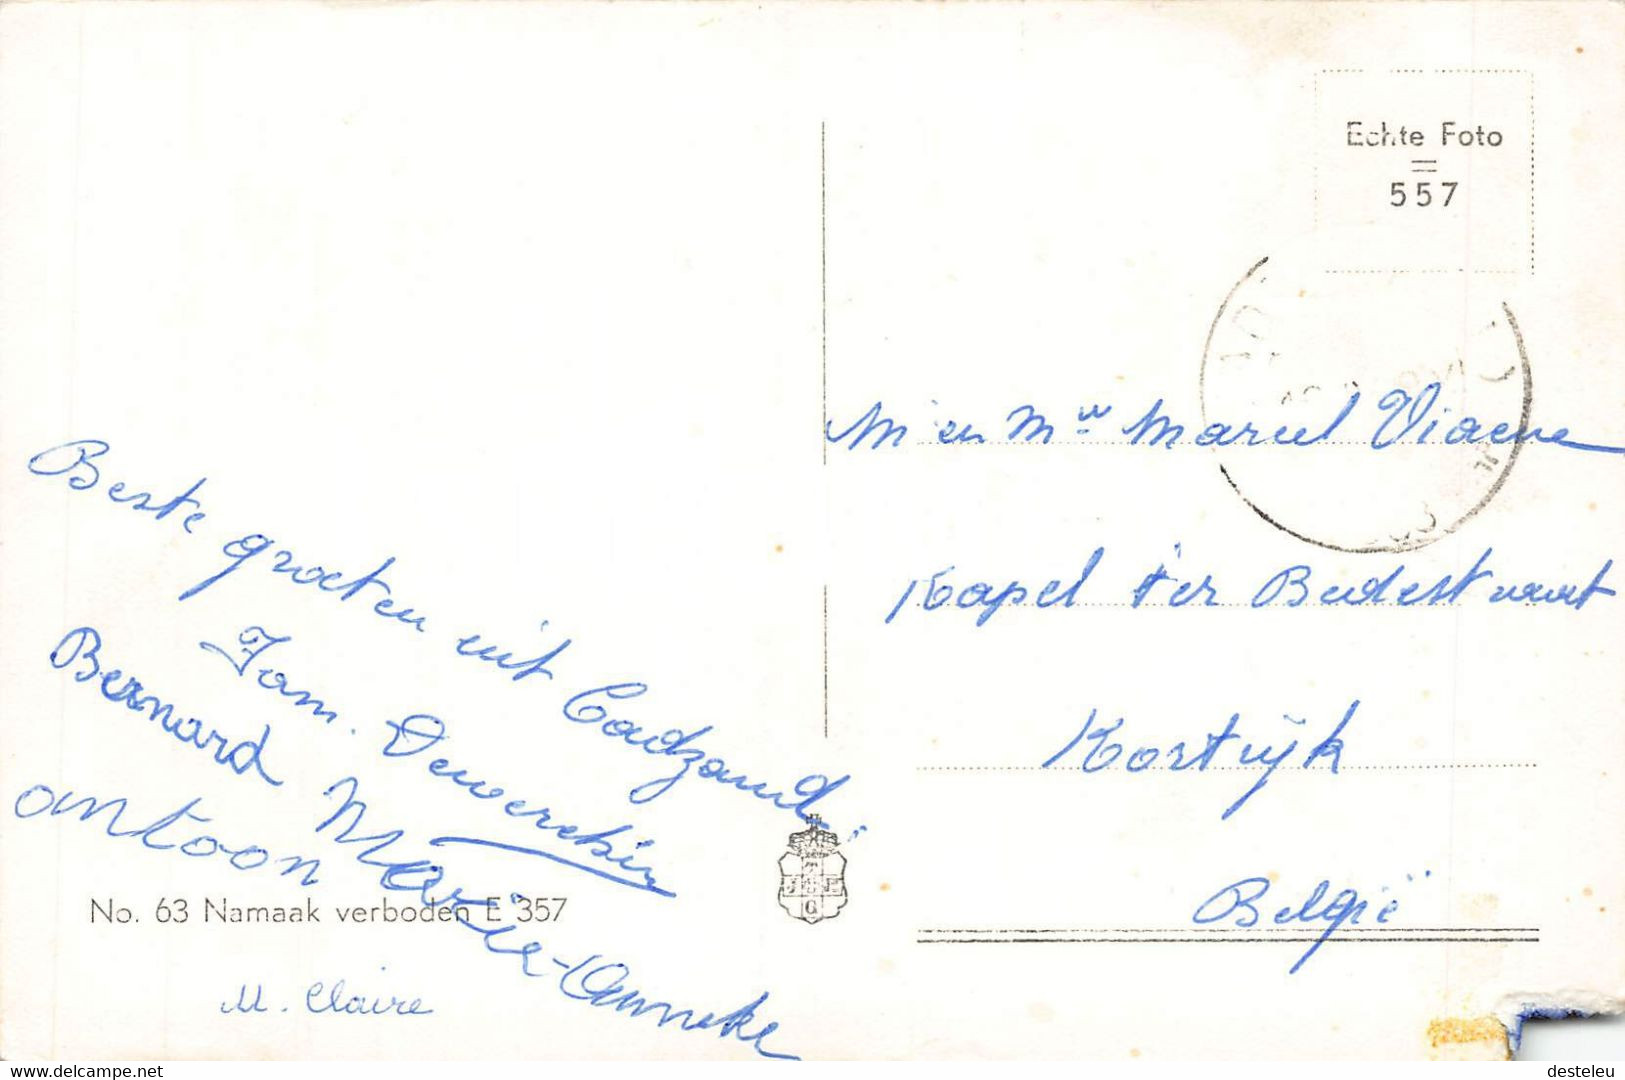 Echte Foto
557
M en Mw Marcel Viaene
Kapel ter Bede straat
Kortrijk
België
Beste groeten uit Cadzand.
Fam.
Bernard Marie-Anneke
antoon
No. 63 Namaak verboden E 357
M. Claire
delcampe.net
desteleu